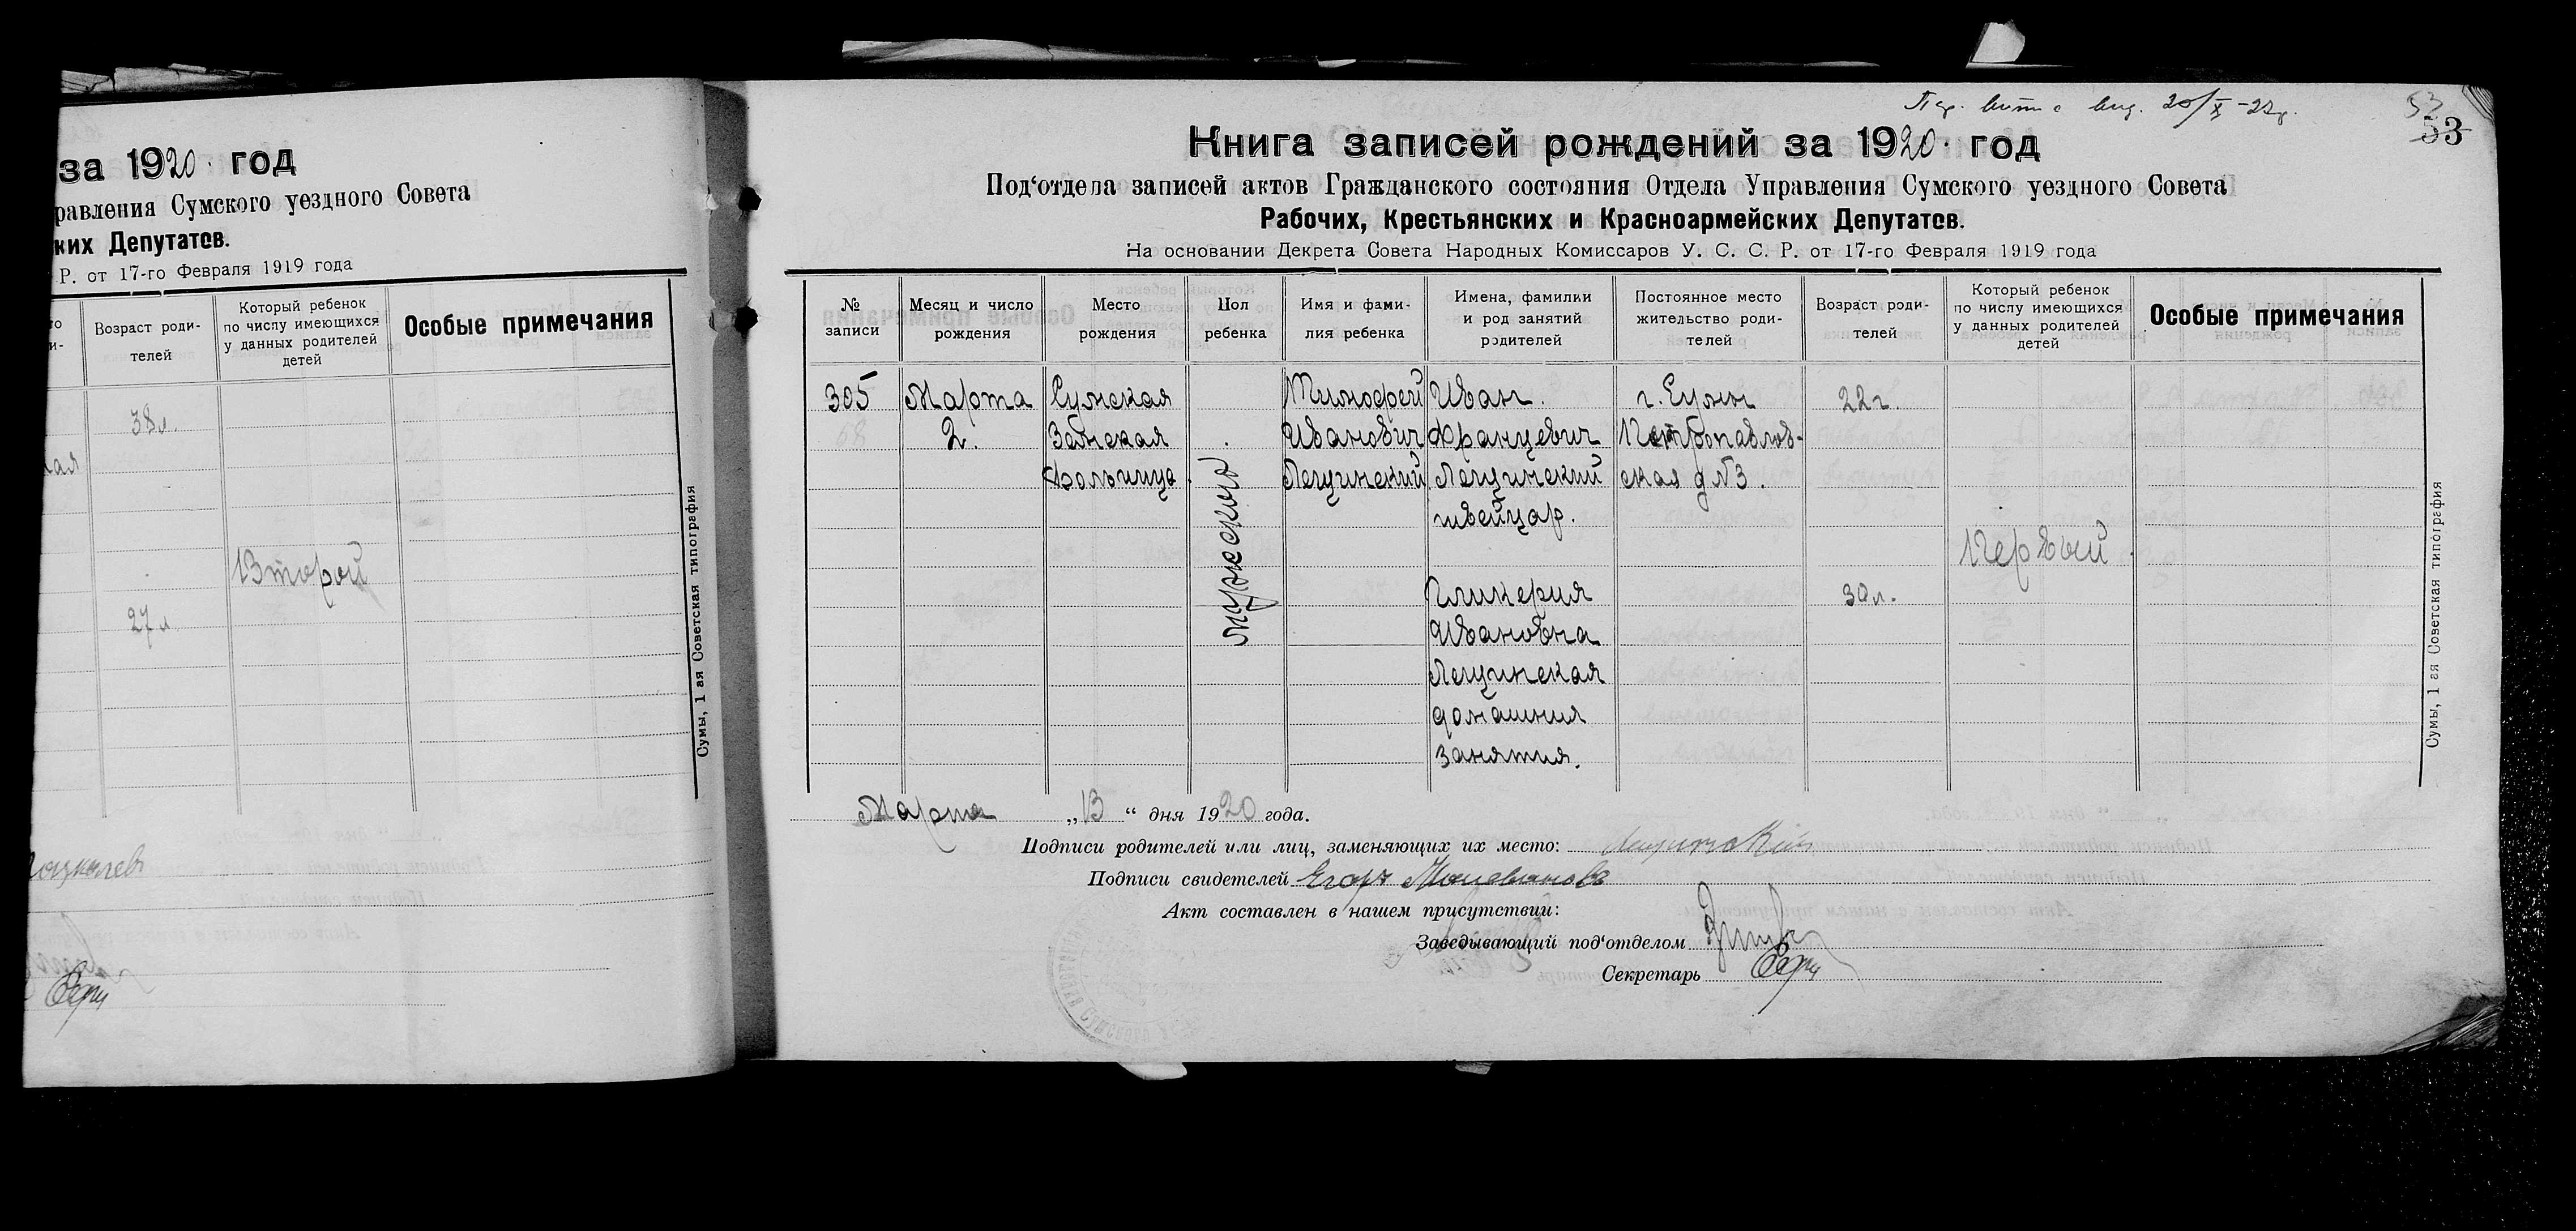 за 1920 год
равления Сумского уездного Совета
ких Депутатов.
Р. от 17-го Февраля 1919 года
Возраст роди-
телей
Который ребенок
по числу имеющихся
у данных родителей
детей
Особые примечания
38 л.
Второй
27 л
Сумы, 1 ая Советская типография
20/X-22г.
53
53
Книга записей рождений за 1920 год
Под‘отдела записей актов Гражданского состояния Отдела Управления Сумского уездного Совета
Рабочих, Крестьянских и Красноармейских Депутатов.
На основании Декрета Совета Народных Комиссаров У. С. С. Р. от 17-го Февраля 1919 года
№
записи
Месяц и число
рождения
Место
рождения
Пол
ребенка
Имя и фами-
лия ребенка
Имена, фамилии
и род занятий
родителей
Постоянное место
жительство роди-
телей
Возраст роди-
телей
Который ребенок
по числу имеющихся
у данных родителей
детей
Особые примечания
305
Марта
2.
Сумская
Земская
больница
мужского
Тимофей
Иванович
Лещинский
Иван
Францевич
Лещинский
швейцар.
Гликерия
Ивановна
Лещинская
домашния
занятия.
г. Сумы
Петропавлов-
ская д №3.
22 г.
30 л.
Первый
Сумы, 1 ая Советская типография
Марта „13“ дня 1920 года.
Подписи родителей или лиц, заменяющих их место: Лещинский
Подписи свидетелей Егоръ
Акт составлен в нашем присутствии:
Заведывающий под‘отделом
Секретарь